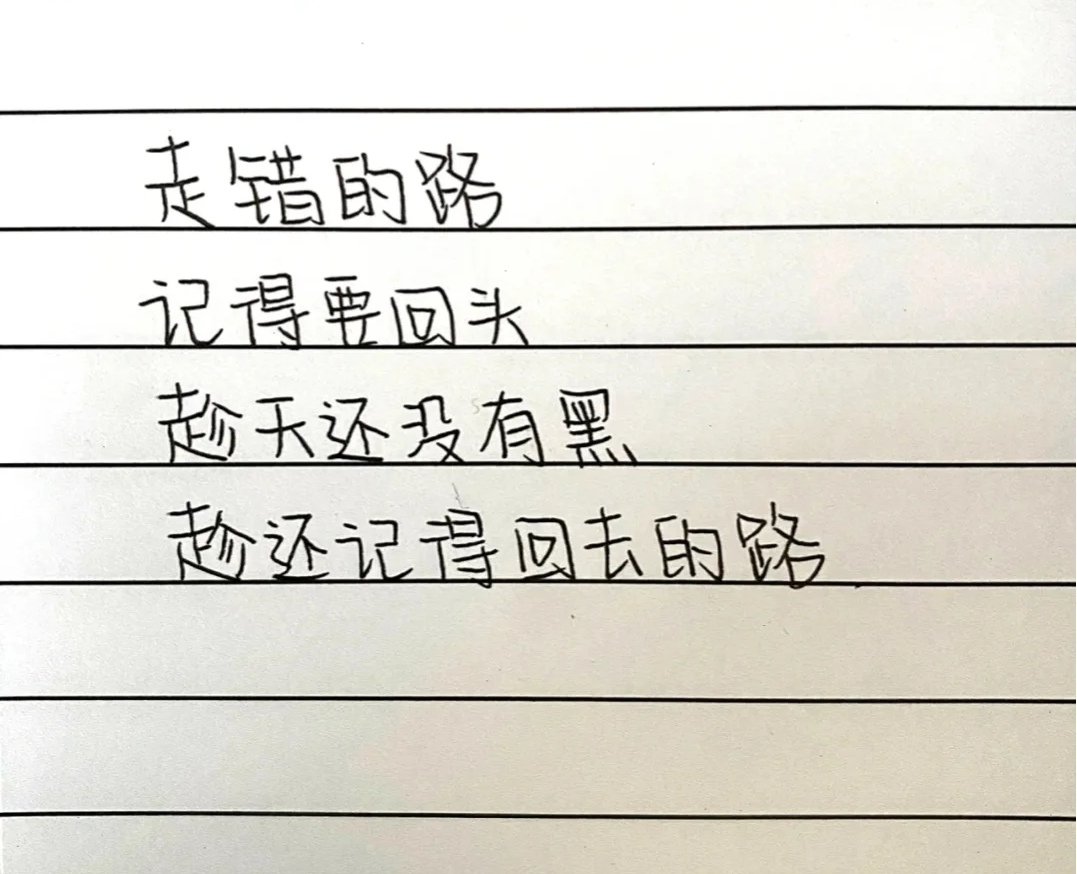 走错的路
记得要回头
趁天还没有黑
趁还记得回去的路